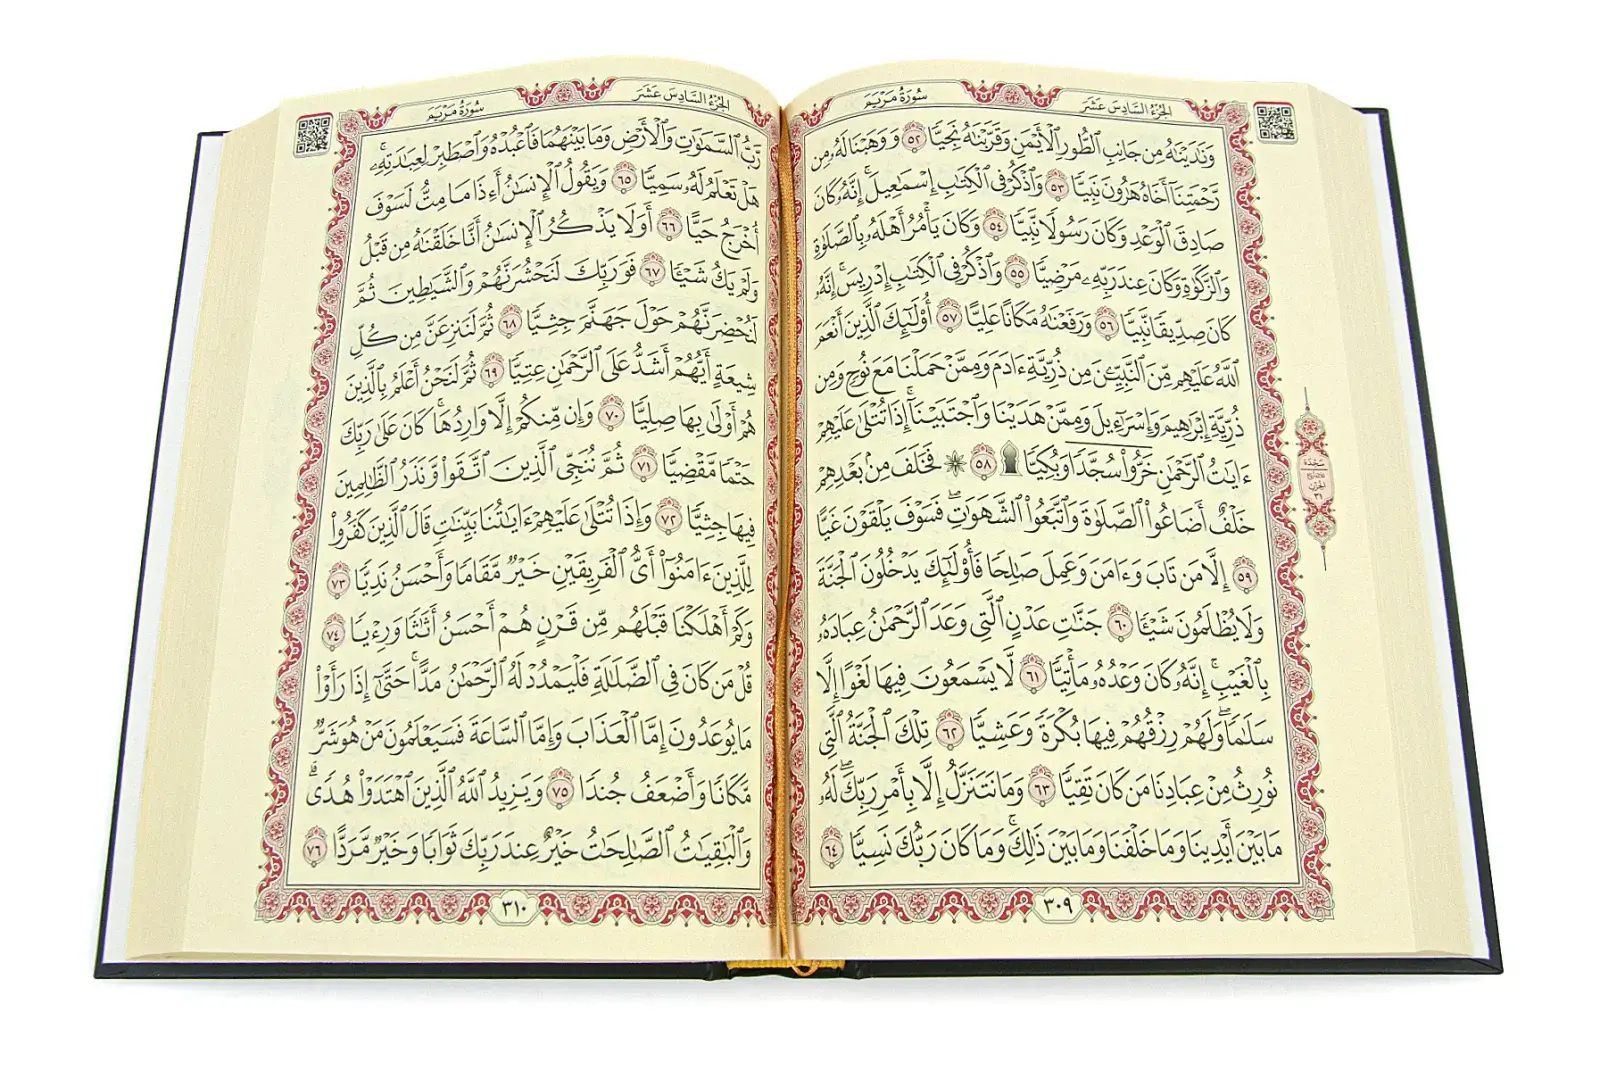 سُورَةُ مَرۡيَمَ
الجُزۡءُ السَّادِسَ عَشَرَ
وَنَٰدَيۡنَٰهُ مِن جَانِبِ ٱلطُّورِ ٱلۡأَيۡمَنِ وَقَرَّبۡنَٰهُ نَجِيّٗا ٥٢ وَوَهَبۡنَا لَهُۥ مِن
رَّحۡمَتِنَآ أَخَاهُ هَٰرُونَ نَبِيّٗا ٥٣ وَٱذۡكُرۡ فِي ٱلۡكِتَٰبِ إِسۡمَٰعِيلَۚ إِنَّهُۥ كَانَ
صَادِقَ ٱلۡوَعۡدِ وَكَانَ رَسُولٗا نَّبِيّٗا ٥٤ وَكَانَ يَأۡمُرُ أَهۡلَهُۥ بِٱلصَّلَوٰةِ
وَٱلزَّكَوٰةِ وَكَانَ عِندَ رَبِّهِۦ مَرۡضِيّٗا ٥٥ وَٱذۡكُرۡ فِي ٱلۡكِتَٰبِ إِدۡرِيسَۚ إِنَّهُۥ
كَانَ صِدِّيقٗا نَّبِيّٗا ٥٦ وَرَفَعۡنَٰهُ مَكَانًا عَلِيًّا ٥٧ أُوْلَٰٓئِكَ ٱلَّذِينَ أَنۡعَمَ
ٱللَّهُ عَلَيۡهِم مِّنَ ٱلنَّبِيِّـۧنَ مِن ذُرِّيَّةِ ءَادَمَ وَمِمَّنۡ حَمَلۡنَا مَعَ نُوحٖ وَمِن
ذُرِّيَّةِ إِبۡرَٰهِيمَ وَإِسۡرَٰٓءِيلَ وَمِمَّنۡ هَدَيۡنَا وَٱجۡتَبَيۡنَآۚ إِذَا تُتۡلَىٰ عَلَيۡهِمۡ
ءَايَٰتُ ٱلرَّحۡمَٰنِ خَرُّواْۤ سُجَّدٗاۤ وَبُكِيّٗا ۩ ٥٨ ۞ فَخَلَفَ مِنۢ بَعۡدِهِمۡ
خَلۡفٌ أَضَاعُواْ ٱلصَّلَوٰةَ وَٱتَّبَعُواْ ٱلشَّهَوَٰتِۖ فَسَوۡفَ يَلۡقَوۡنَ غَيًّا
٥٩ إِلَّا مَن تَابَ وَءَامَنَ وَعَمِلَ صَٰلِحٗا فَأُوْلَٰٓئِكَ يَدۡخُلُونَ ٱلۡجَنَّةَ
وَلَا يُظۡلَمُونَ شَيۡـٔٗا ٦٠ جَنَّٰتِ عَدۡنٍ ٱلَّتِي وَعَدَ ٱلرَّحۡمَٰنُ عِبَادَهُۥ
بِٱلۡغَيۡبِۚ إِنَّهُۥ كَانَ وَعۡدُهُۥ مَأۡتِيّٗا ٦١ لَّا يَسۡمَعُونَ فِيهَا لَغۡوًا إِلَّا
سَلَٰمٗاۖ وَلَهُمۡ رِزۡقُهُمۡ فِيهَا بُكۡرَةٗ وَعَشِيّٗا ٦٢ تِلۡكَ ٱلۡجَنَّةُ ٱلَّتِي
نُورِثُ مِنۡ عِبَادِنَا مَن كَانَ تَقِيّٗا ٦٣ وَمَا نَتَنَزَّلُ إِلَّا بِأَمۡرِ رَبِّكَۖ لَهُۥ
مَا بَيۡنَ أَيۡدِينَا وَمَا خَلۡفَنَا وَمَا بَيۡنَ ذَٰلِكَۚ وَمَا كَانَ رَبُّكَ نَسِيّٗا ٦٤
٣٠٩
سَجۡدَة
الحِزۡب
٣١
سُورَةُ مَرۡيَمَ
الجُزۡءُ السَّادِسَ عَشَرَ
رَّبُّ ٱلسَّمَٰوَٰتِ وَٱلۡأَرۡضِ وَمَا بَيۡنَهُمَا فَٱعۡبُدۡهُ وَٱصۡطَبِرۡ لِعِبَٰدَتِهِۦۚ
هَلۡ تَعۡلَمُ لَهُۥ سَمِيّٗا ٦٥ وَيَقُولُ ٱلۡإِنسَٰنُ أَءِذَا مَا مِتُّ لَسَوۡفَ
أُخۡرَجُ حَيًّا ٦٦ أَوَلَا يَذۡكُرُ ٱلۡإِنسَٰنُ أَنَّا خَلَقۡنَٰهُ مِن قَبۡلُ
وَلَمۡ يَكُ شَيۡـٔٗا ٦٧ فَوَرَبِّكَ لَنَحۡشُرَنَّهُمۡ وَٱلشَّيَٰطِينَ ثُمَّ
لَنُحۡضِرَنَّهُمۡ حَوۡلَ جَهَنَّمَ جِثِيّٗا ٦٨ ثُمَّ لَنَنزِعَنَّ مِن كُلِّ
شِيعَةٍ أَيُّهُمۡ أَشَدُّ عَلَى ٱلرَّحۡمَٰنِ عِتِيّٗا ٦٩ ثُمَّ لَنَحۡنُ أَعۡلَمُ بِٱلَّذِينَ
هُمۡ أَوۡلَىٰ بِهَا صِلِيّٗا ٧٠ وَإِن مِّنكُمۡ إِلَّا وَارِدُهَاۚ كَانَ عَلَىٰ رَبِّكَ
حَتۡمٗا مَّقۡضِيّٗا ٧١ ثُمَّ نُنَجِّي ٱلَّذِينَ ٱتَّقَواْ وَّنَذَرُ ٱلظَّٰلِمِينَ
فِيهَا جِثِيّٗا ٧٢ وَإِذَا تُتۡلَىٰ عَلَيۡهِمۡ ءَايَٰتُنَا بَيِّنَٰتٖ قَالَ ٱلَّذِينَ كَفَرُواْ
لِلَّذِينَ ءَامَنُوٓاْ أَيُّ ٱلۡفَرِيقَيۡنِ خَيۡرٞ مَّقَامٗا وَأَحۡسَنُ نَدِيّٗا ٧٣
وَكَمۡ أَهۡلَكۡنَا قَبۡلَهُم مِّن قَرۡنٍ هُمۡ أَحۡسَنُ أَثَٰثٗا وَرِءۡيٗا ٧٤
قُلۡ مَن كَانَ فِي ٱلضَّلَٰلَةِ فَلۡيَمۡدُدۡ لَهُ ٱلرَّحۡمَٰنُ مَدًّاۚ حَتَّىٰٓ إِذَا رَأَوۡاْ
مَا يُوعَدُونَ إِمَّا ٱلۡعَذَابَ وَإِمَّا ٱلسَّاعَةَ فَسَيَعۡلَمُونَ مَنۡ هُوَ شَرّٞ
مَّكَانٗا وَأَضۡعَفُ جُندٗا ٧٥ وَيَزِيدُ ٱللَّهُ ٱلَّذِينَ ٱهۡتَدَوۡاْ هُدٗىۗ
وَٱلۡبَٰقِيَٰتُ ٱلصَّٰلِحَٰتُ خَيۡرٌ عِندَ رَبِّكَ ثَوَابٗا وَخَيۡرٞ مَّرَدًّا ٧٦
٣١٠